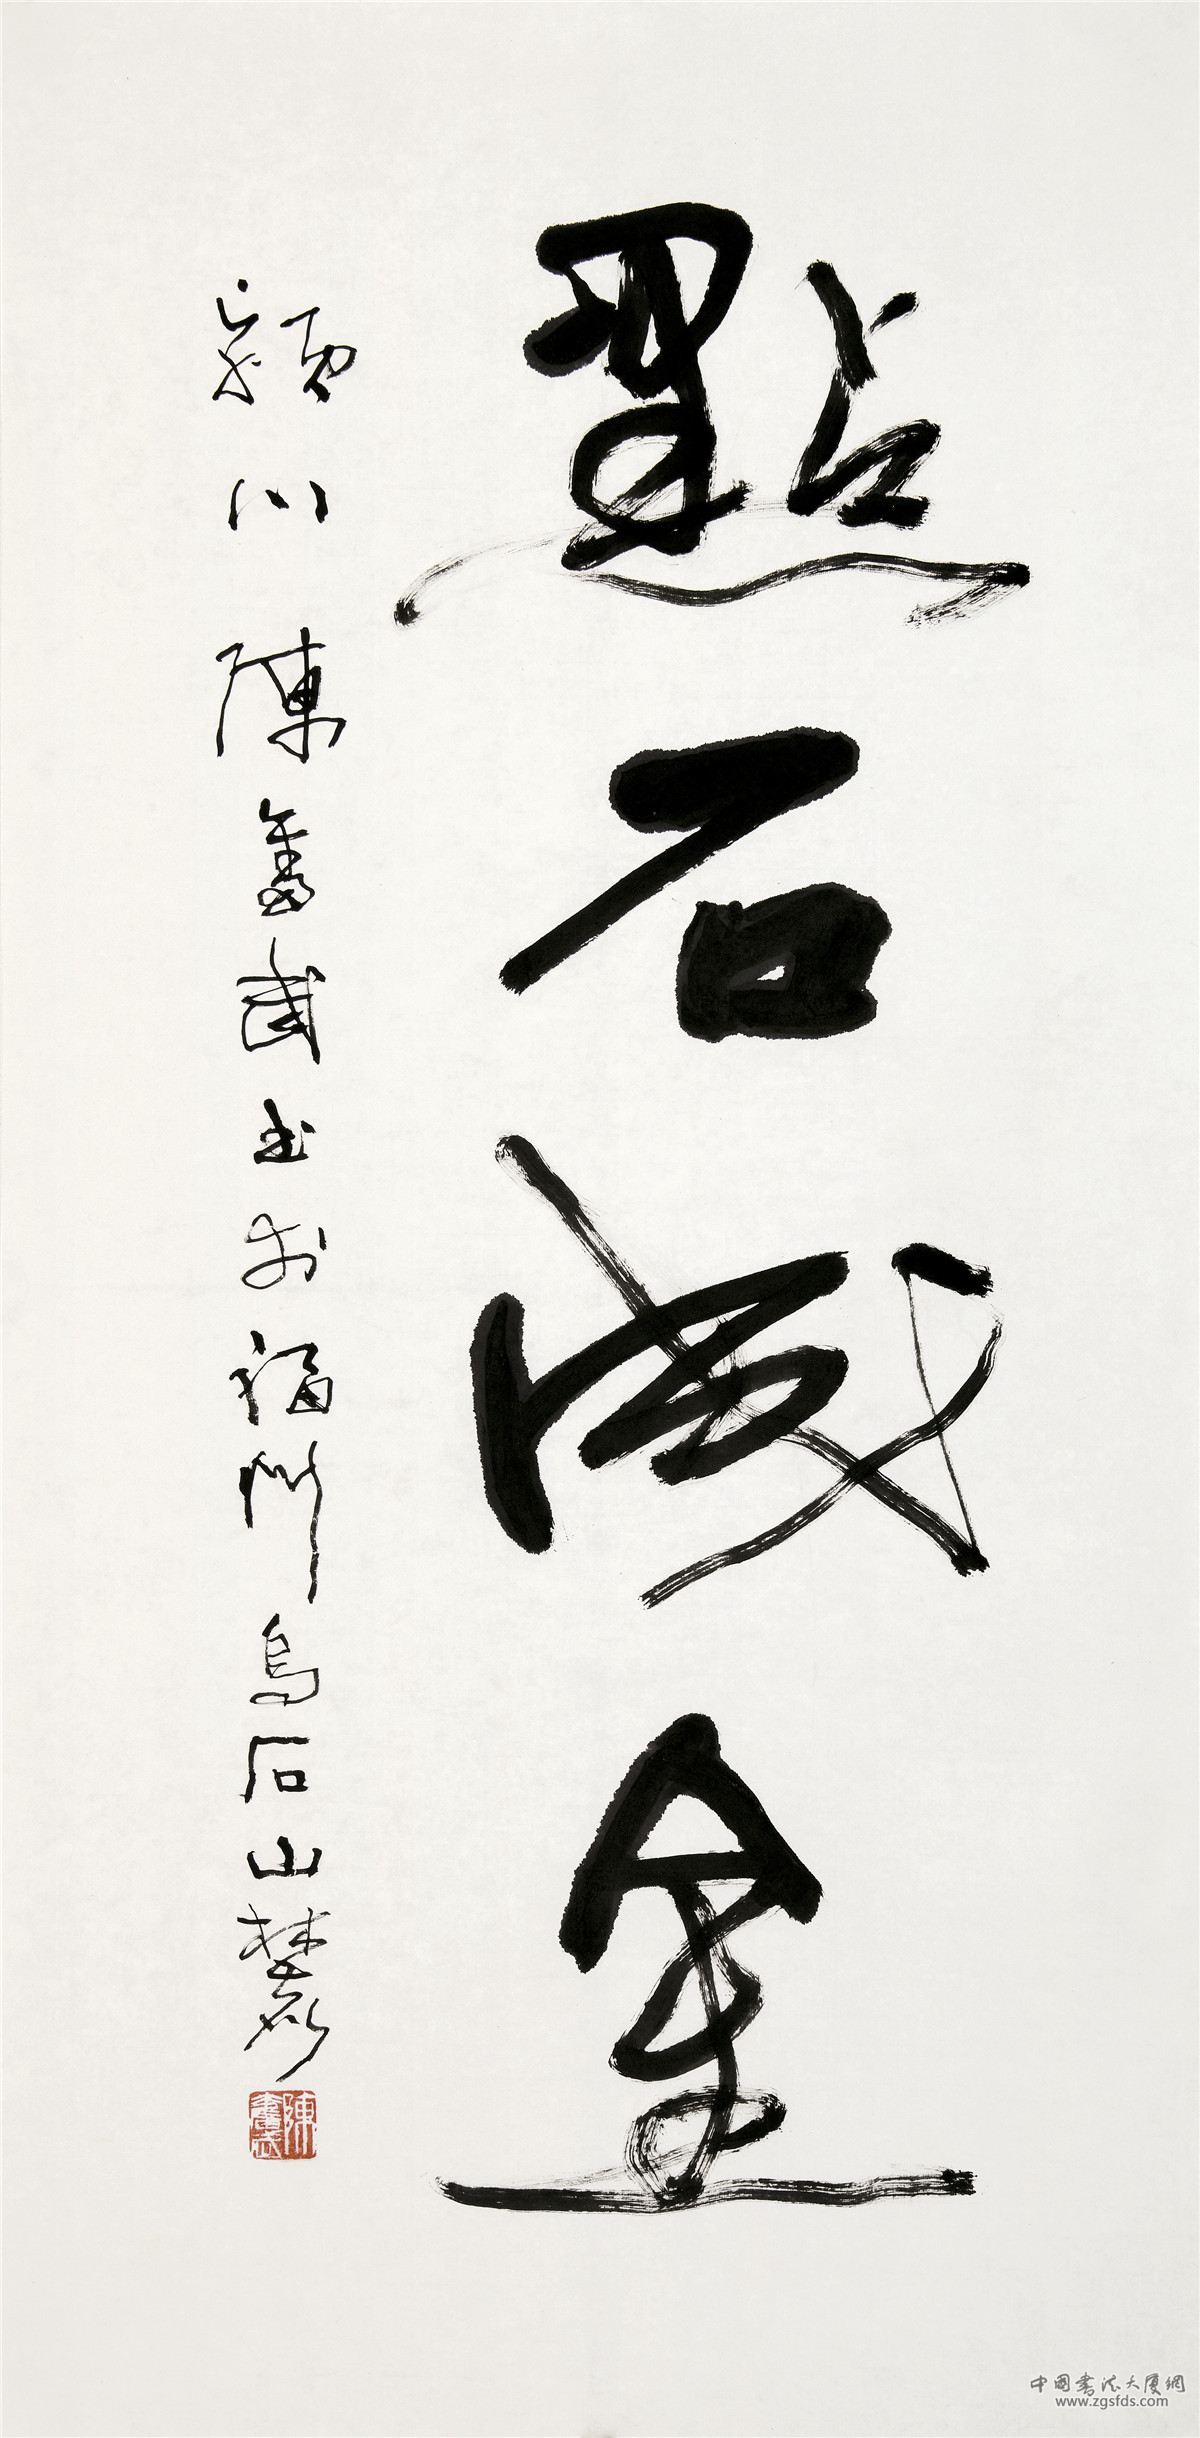 點石成金
穎川陳奮武书於福州烏石山麓
陳奮武
中國書法大厦網
www.zgsfds.com